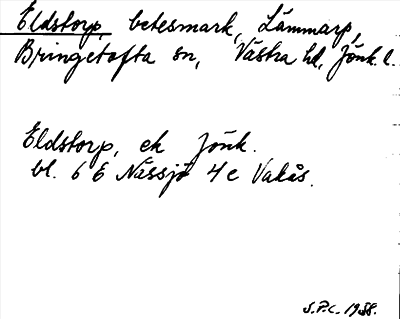 Eldstorp, betesmark, Lämmarp,
Bringetofta sn, Västra hd, Jönk. l.
Eldstorp, ek Jönk.
bl. 6 E Nässjö 4 e Vakås.
S.P.C. 1988.